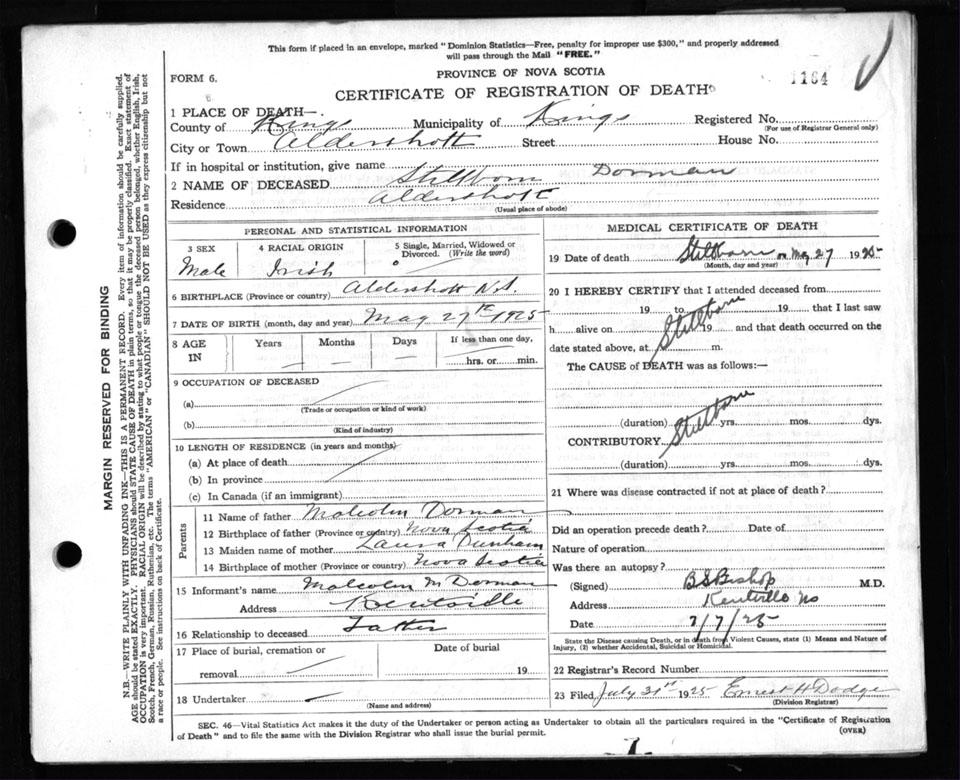 This form if placed in an envelope, marked "Dominion Statistics—Free, penalty for improper use $300," and properly addressed
will pass through the Mail "FREE."
FORM 6.
PROVINCE OF NOVA SCOTIA
1164
CERTIFICATE OF REGISTRATION OF DEATH
1 PLACE OF DEATH—
County of Kings Municipality of Kings Registered No.
(For use of Registrar General only)
City or Town Aldershott Street House No.
If in hospital or institution, give name
2 NAME OF DECEASED Stillborn Dorman
Residence Aldershott
(Usual place of abode)
PERSONAL AND STATISTICAL INFORMATION
3 SEX 4 RACIAL ORIGIN 5 Single, Married, Widowed or
Divorced. (Write the word)
Male Irish
6 BIRTHPLACE (Province or country) Aldershott N.S.
7 DATE OF BIRTH (month, day and year) May 27th 1925
8 AGE IN Years Months Days If less than one day,
hrs. or min.
9 OCCUPATION OF DECEASED
(a)
(Trade or occupation or kind of work)
(b)
(Kind of industry)
10 LENGTH OF RESIDENCE (in years and months)
(a) At place of death
(b) In province
(c) In Canada (if an immigrant)
Parents
11 Name of father Malcolm Dorman
12 Birthplace of father (Province or country) Nova Scotia
13 Maiden name of mother Laura Dunham
14 Birthplace of mother (Province or country) Nova Scotia
15 Informant's name Malcolm M Dorman
Address Kentville
16 Relationship to deceased Father
17 Place of burial, cremation or Date of burial
removal 19
18 Undertaker
(Name and address)
MEDICAL CERTIFICATE OF DEATH
19 Date of death Stillborn on May 27 1925
(Month, day and year)
20 I HEREBY CERTIFY that I attended deceased from
19 to 19 that I last saw
h alive on Stillborn 19 and that death occurred on the
date stated above, at m.
The CAUSE of DEATH was as follows:—
(duration) yrs. mos. dys.
CONTRIBUTORY Stillborn
(duration) yrs. mos. dys.
21 Where was disease contracted if not at place of death?
Did an operation precede death? Date of
Nature of operation
Was there an autopsy?
(Signed) B S Bishop M.D.
Address Kentville NS
Date 7/7/25
State the Disease causing Death, or in death from Violent Causes, state (1) Means and Nature of
Injury, (2) whether Accidental, Suicidal or Homicidal.
22 Registrar's Record Number
23 Filed July 31st 1925 Ernest H Dodge
(Division Registrar)
SEC. 46—Vital Statistics Act makes it the duty of the Undertaker or person acting as Undertaker to obtain all the particulars required in the "Certificate of Registration
of Death" and to file the same with the Division Registrar who shall issue the burial permit.
(OVER)
MARGIN RESERVED FOR BINDING
N.B.—WRITE PLAINLY WITH UNFADING INK—THIS IS A PERMANENT RECORD. Every item of information should be carefully supplied.
AGE should be stated EXACTLY. PHYSICIANS should STATE CAUSE OF DEATH in plain terms, so that it may be properly classified. Exact statement of
OCCUPATION is very important. RACIAL ORIGIN will be described by stating to what people or tongue the deceased person belonged, whether English, Irish,
Scotch, French, German, Russian, Ruthenian, etc. The terms "AMERICAN" or "CANADIAN" SHOULD NOT BE USED as they express citizenship but not
a race or people. See instructions on back of Certificate.